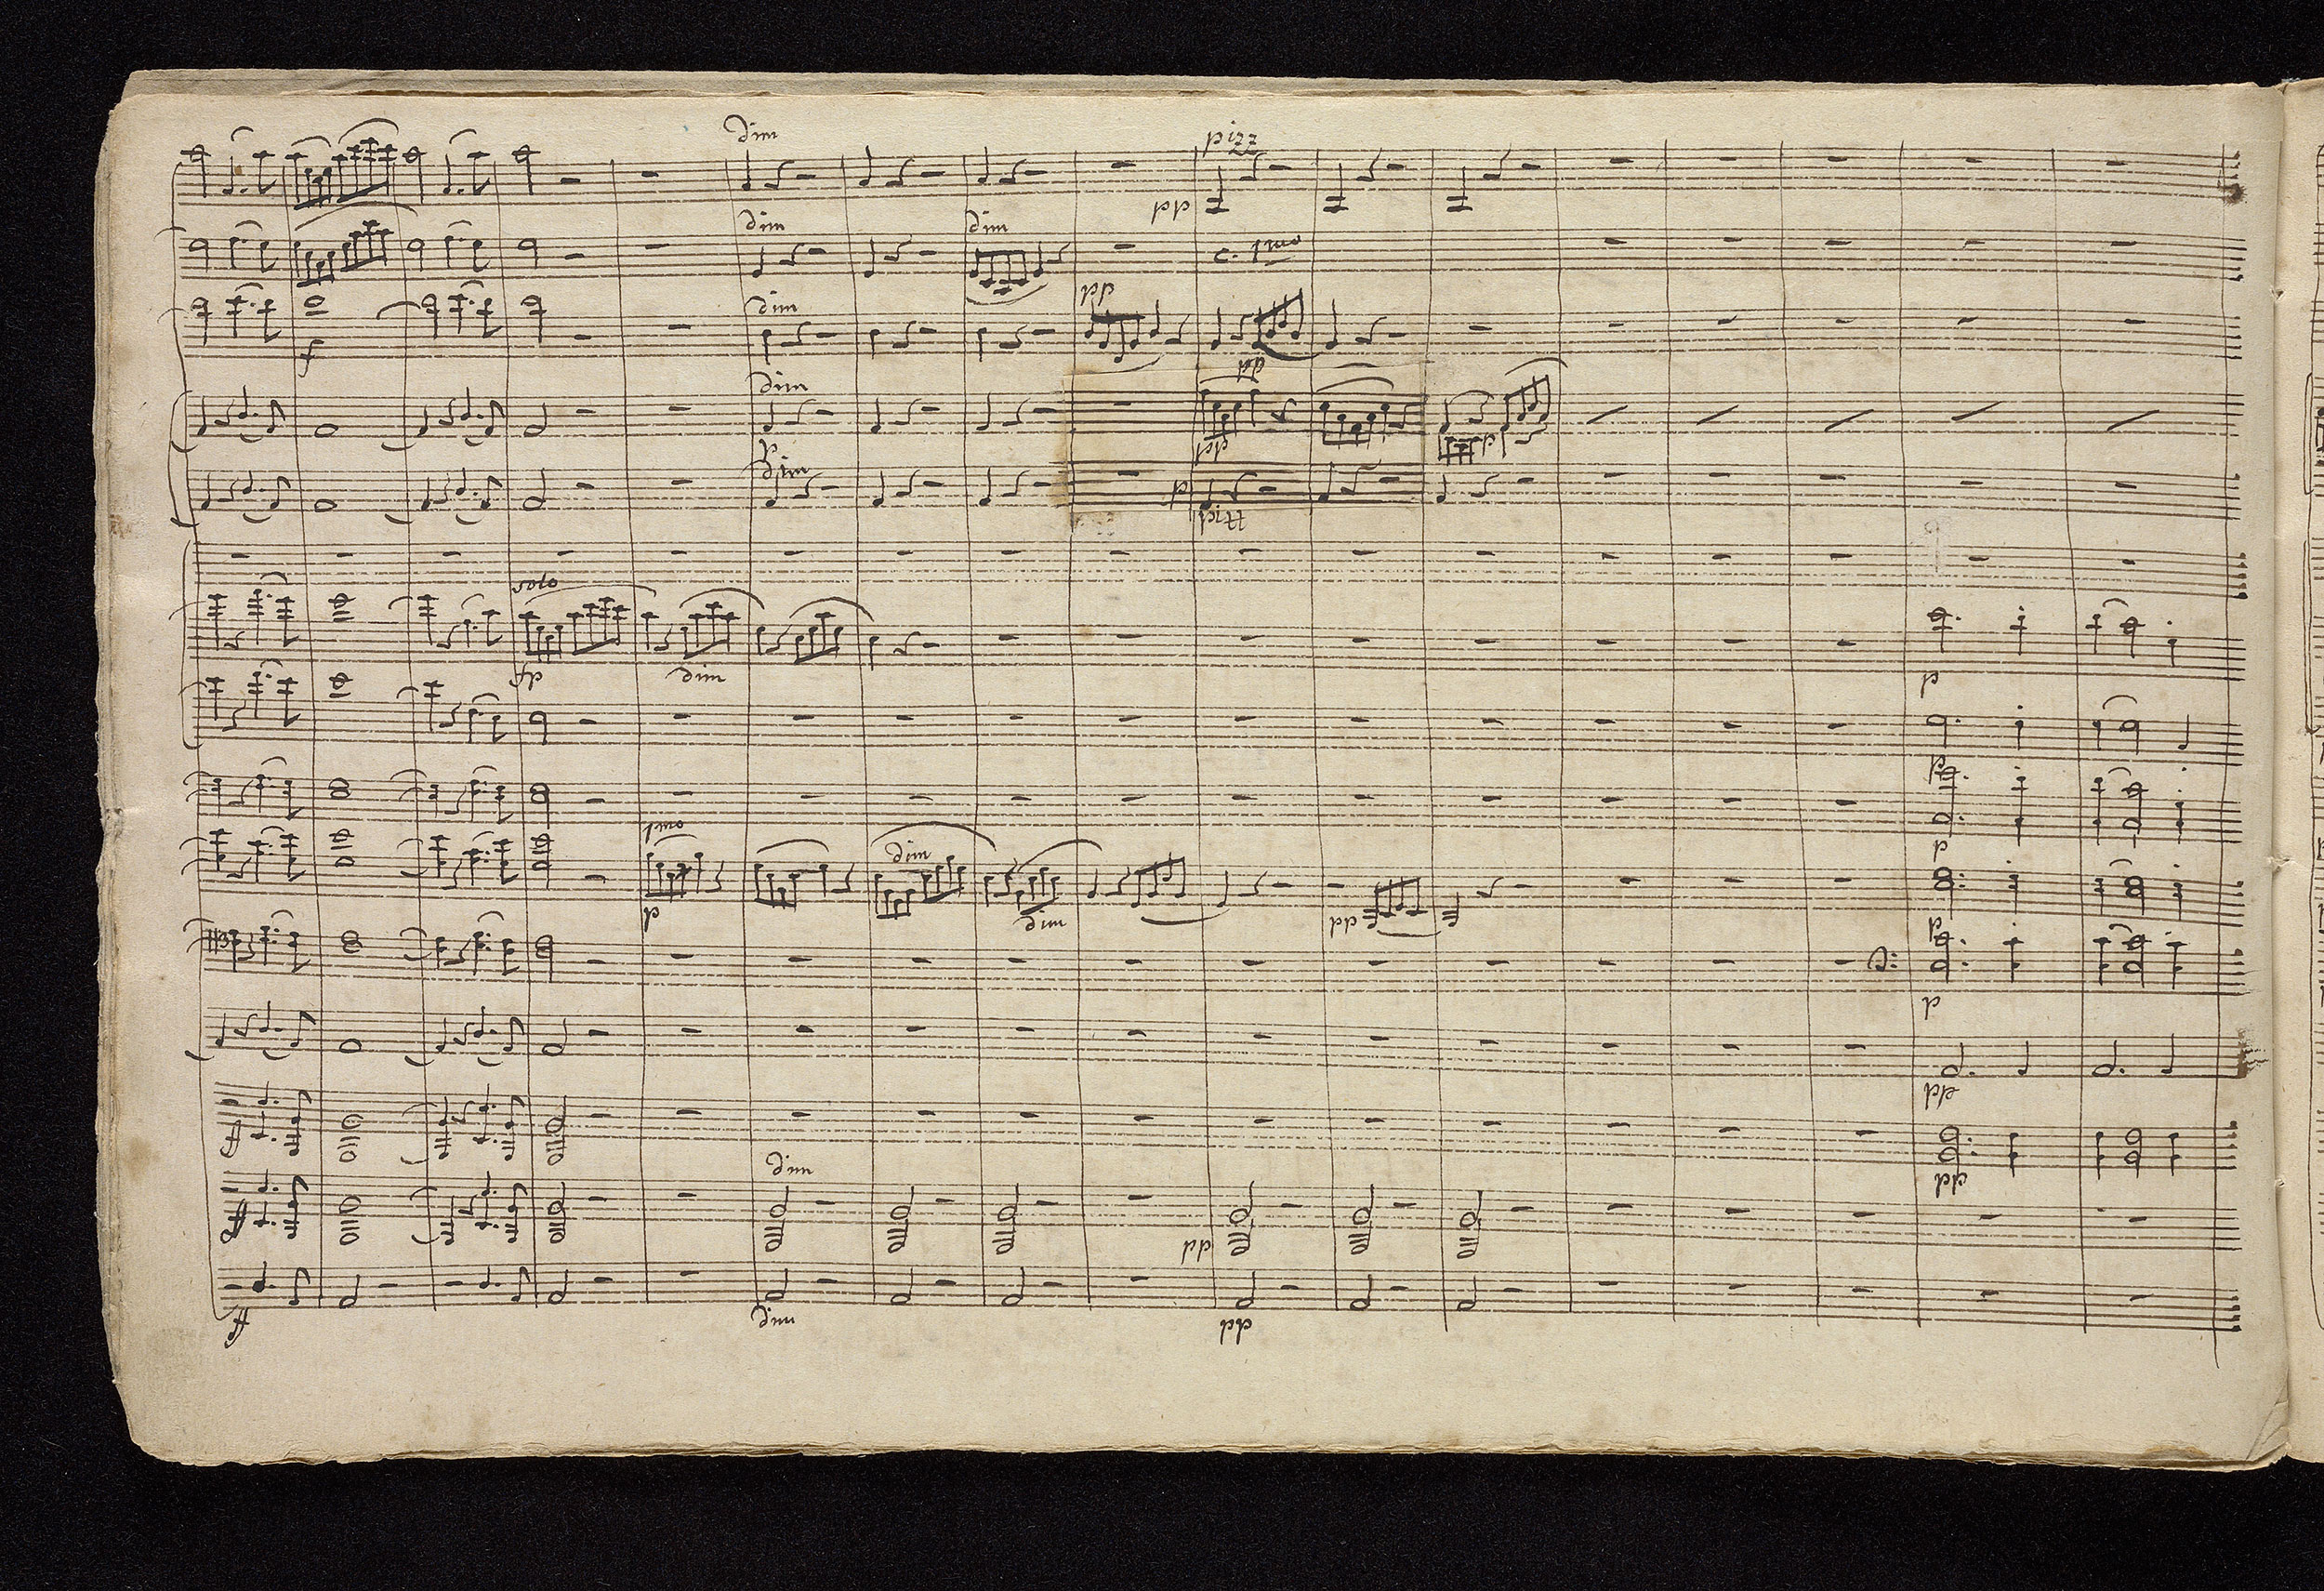 dim
pizz
pp
dim
dim
c. 1mo
dim
pp
f
pp
dim
p
pp
pp
dim
p
pizz
solo
fp
dim
p
p
1mo
p
dim
dim
pp
p
p
p
pp
ff
pp
dim
ff
pp
dim
pp
ff